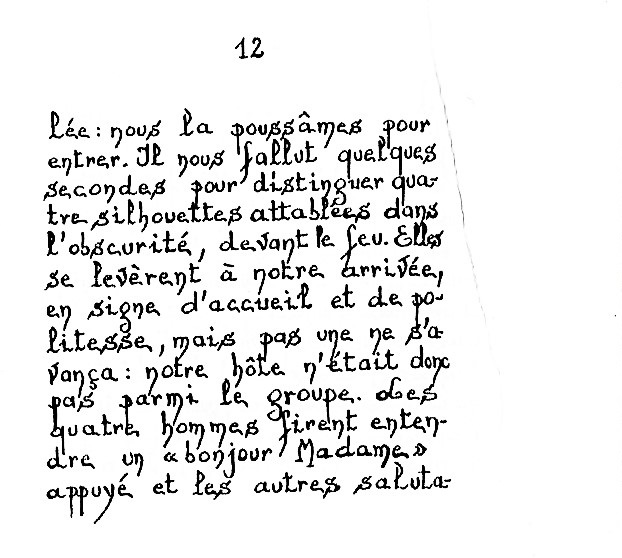 12
lée : nous la poussâmes pour
entrer. Il nous fallut quelques
secondes pour distinguer qua-
tre silhouettes attablées dans
l'obscurité, devant le feu. Elles
se levèrent à notre arrivée,
en signe d'accueil et de po-
litesse, mais pas une ne s'a-
vança : notre hôte n'était donc
pas parmi le groupe. Les
quatre hommes firent enten-
dre un «bonjour Madame»
appuyé et les autres saluta-